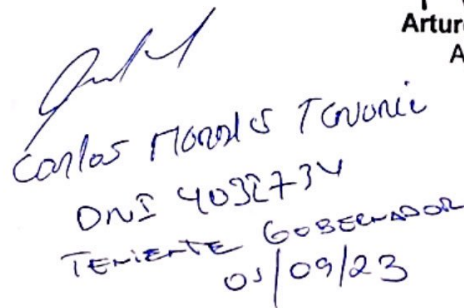 Artur
A
Carlos Morales Tenorio
DNI 4032734
TENIENTE GOBERNADOR
01/09/23